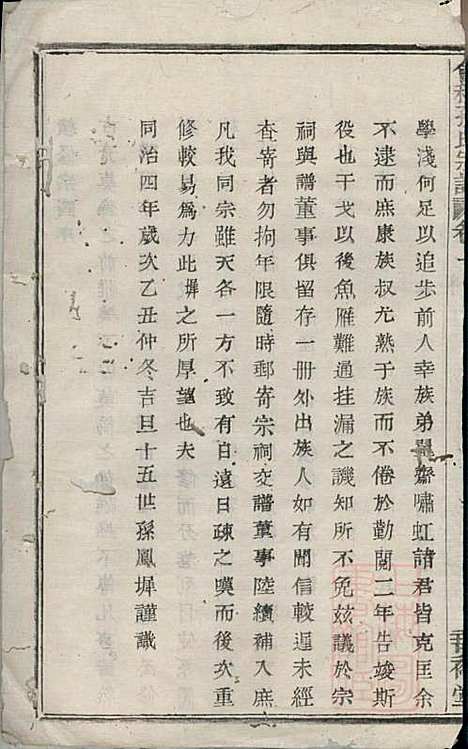 學淺何足以追步前人幸族弟巽齋嘯虹諸君皆克匡余
不逮而庶康族叔尤熟于族而不倦於勤閱二年告竣斯
役也干戈以後魚雁難通挂漏之譏知所不免茲議於宗
祠與譜董事俱留存一冊外出族人如有聞信較遲未經
查寄者勿拘年限隨時郵寄宗祠交譜董事陸續補入庶
凡我同宗雖天各一方不致有日遠日疎之嘆而後次重
修較易爲力此墀之所厚望也夫
同治四年歲次乙丑仲冬吉旦十五世孫鳳墀謹識